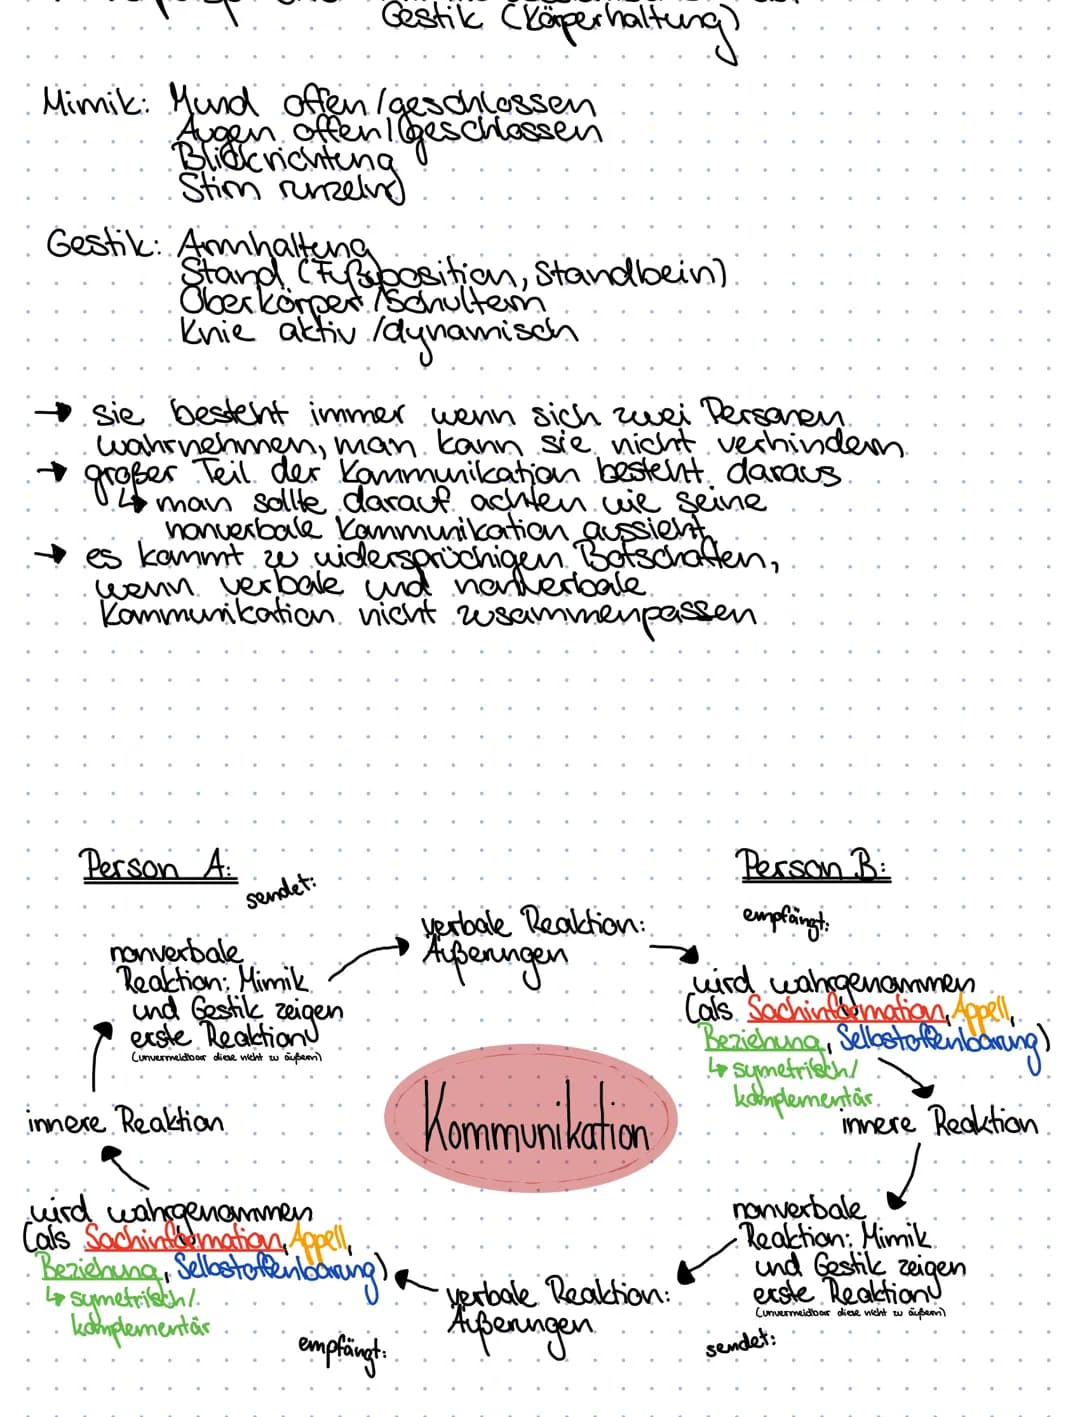 Gestik (Körperhaltung)
Mimik: Mund offen/geschlossen
Augen offen/geschlossen
Blickrichtung
Stirn runzeln
Gestik: Armhaltung
Stand (Fußposition, Standbein)
Oberkörper/Schultern
Knie aktiv/dynamisch
→ sie besteht immer wenn sich zwei Personen
wahrnehmen, man kann sie nicht verhindern
→ großer Teil der Kommunikation besteht daraus
↳ man sollte darauf achten wie seine
nonverbale Kommunikation aussieht
→ es kommt zu widersprüchigen Botschaften,
wenn verbale und nonverbale
Kommunikation nicht zusammenpassen
Person A:
sendet:
nonverbale
Reaktion: Mimik
und Gestik zeigen
erste Reaktion
(unvermeidbar diese nicht zu äußern)
verbale Reaktion:
Äußerungen
Person B:
empfängt:
wird wahrgenommen
(als Sachinformation, Appell,
Beziehung, Selbstoffenbarung)
↳ symetrisch/
komplementär
innere Reaktion
Kommunikation
innere Reaktion
nonverbale
Reaktion: Mimik
und Gestik zeigen
erste Reaktion
(unvermeidbar diese nicht zu äußern)
sendet:
verbale Reaktion:
Äußerungen
wird wahrgenommen
(als Sachinformation, Appell,
Beziehung, Selbstoffenbarung)
↳ symetrisch/
komplementär
empfängt: